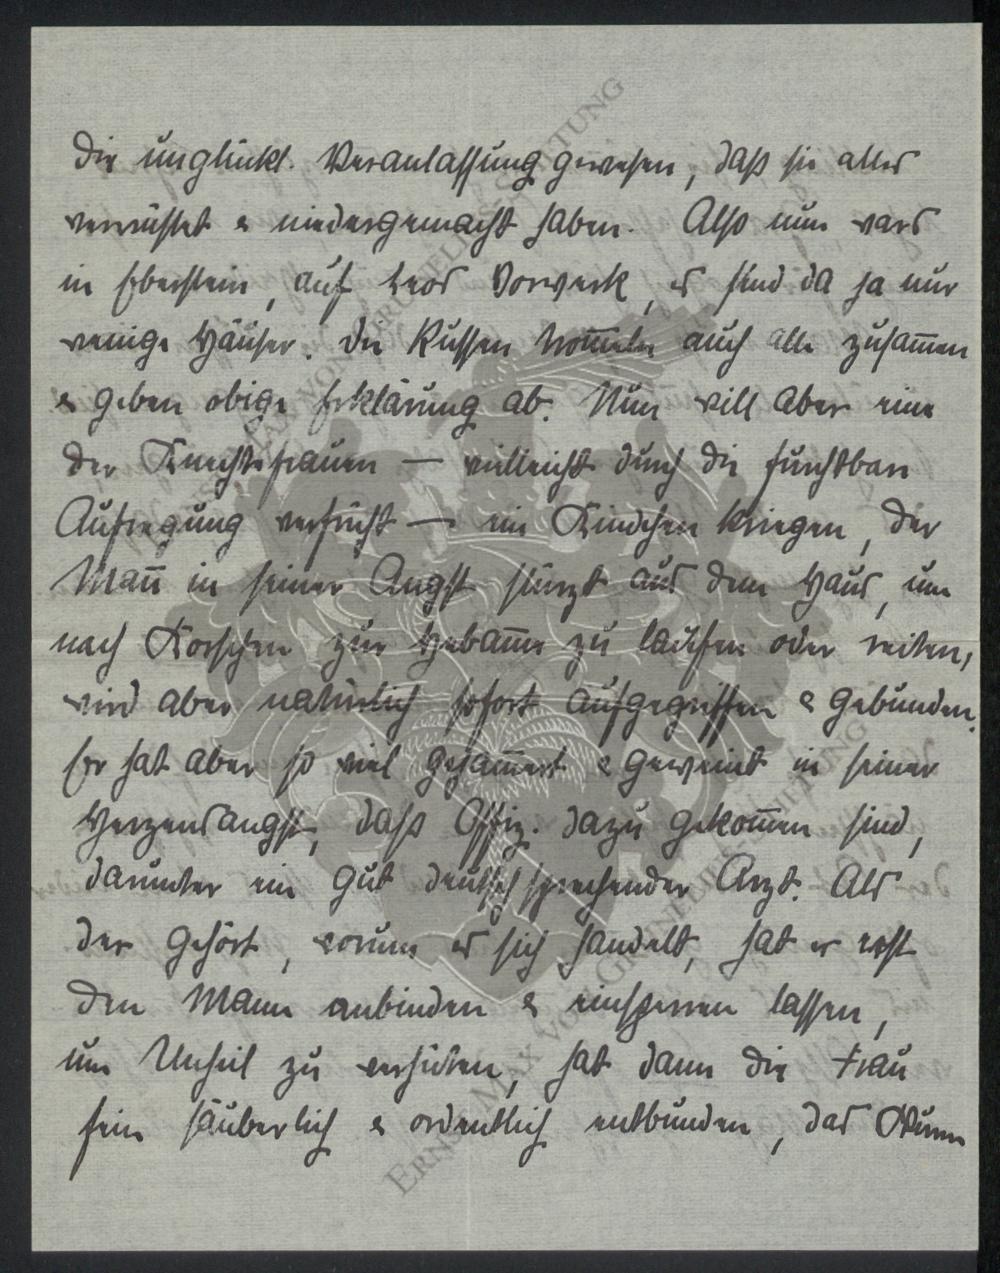 die unglückl. Veranlassung gewesen, daß sie alles
verwüstet & niedergemacht haben. Also nun wars
in Eberstein, auf Vorwerk, es sind da ja nur
wenige Häuser. Die Russen trommeln auch alle zusam̄en
& geben obige Erklärung ab. Nun will aber eine
der Knechtsfrauen — vielleicht durch die furchtbare
Aufregung verfrüht — ein Kindchen kriegen, der
Man̄ in seiner Angst stürzt aus dem Haus, um
nach Korschen zur Hebam̄e zu laufen oder reiten,
wird aber natürlich sofort aufgegriffen & gebunden.
Er hat aber so viel gejam̄ert & geweint in seiner
Herzensangst, daß Offiz. dazu gekom̄en sind,
darunter ein gut deutsch sprechender Arzt. Als
der gehört, worum es sich handelt, hat er erst
den Mann anbinden & einsperren lassen,
um Unheil zu verhüten, hat dann die Frau
fein säuberlich & ordentlich entbunden, das
ERNST MAX VON GRUNELIUS-STIFTUNG
ERNST MAX VON GRUNELIUS-STIFTUNG